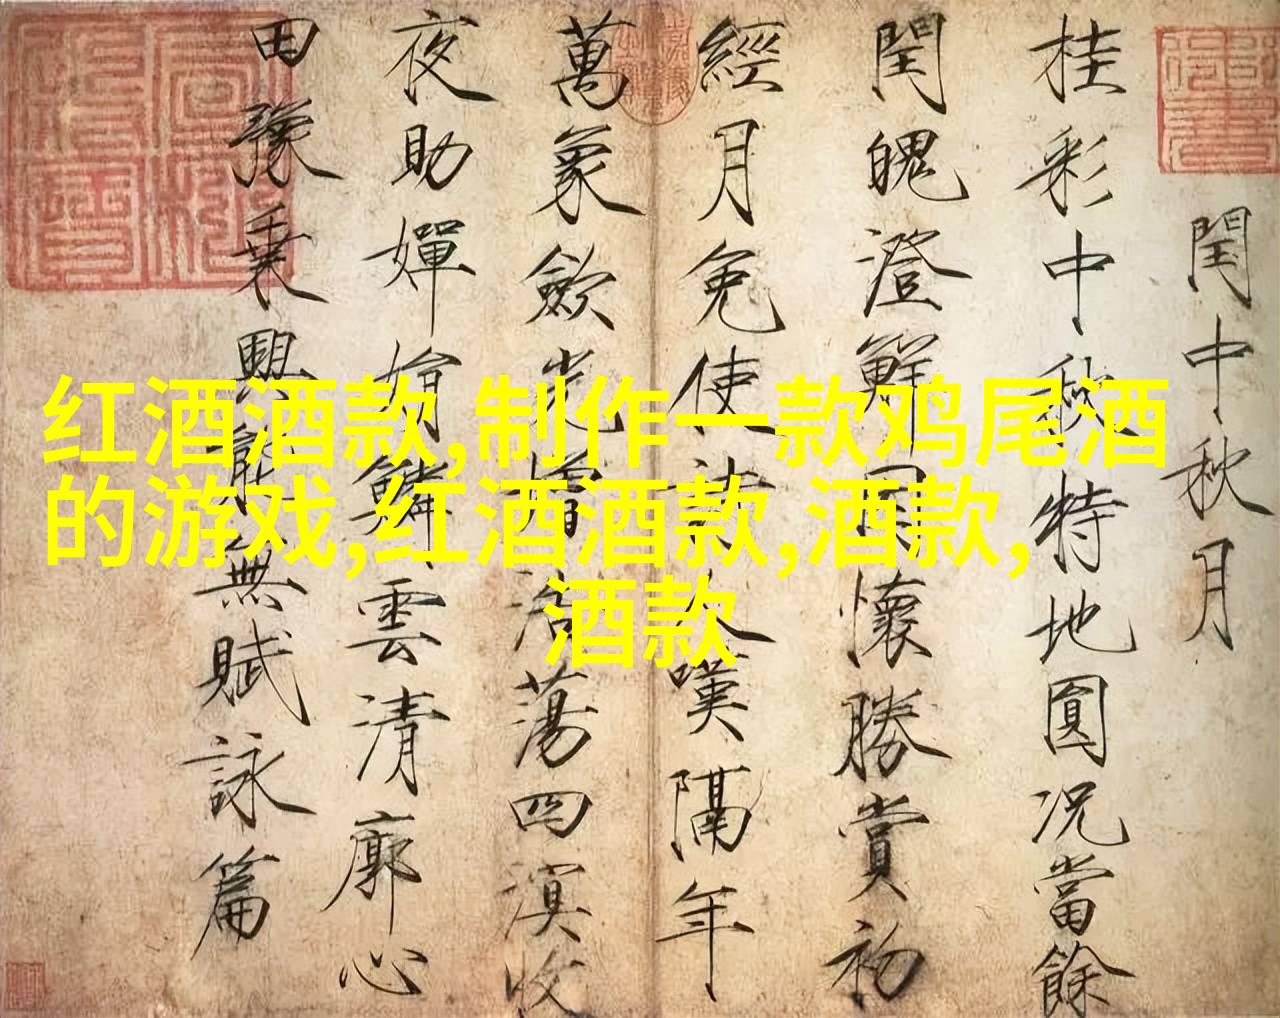 閏中秋月
桂彩中秋特地圓況當餘
閏魄澄鮮因懷勝賞初
經月免使詩人嘆隔年
萬象歛光增浩蕩四溟收
夜助嬋娟鱗雲清廓心
田豫乗興能無賦詠篇
红酒酒款,制作一款鸡尾酒
的游戏,红酒酒款,酒款,
酒款